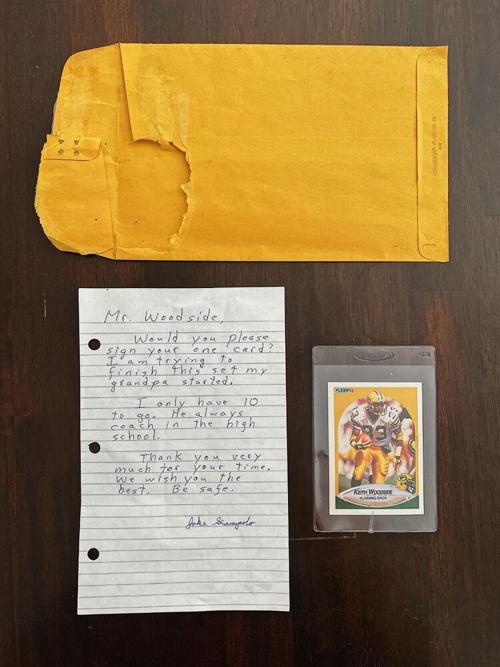 Mr. Woodside,
Would you please
sign your one card?
I am trying to
finish this set my
grandpa started.
I only have 10
to go. He always
coach in the high
school.
Thank you very
much for your time.
We wish you the
best. Be safe.
FLEER '90
KEITH WOODSIDE
RUNNING BACK